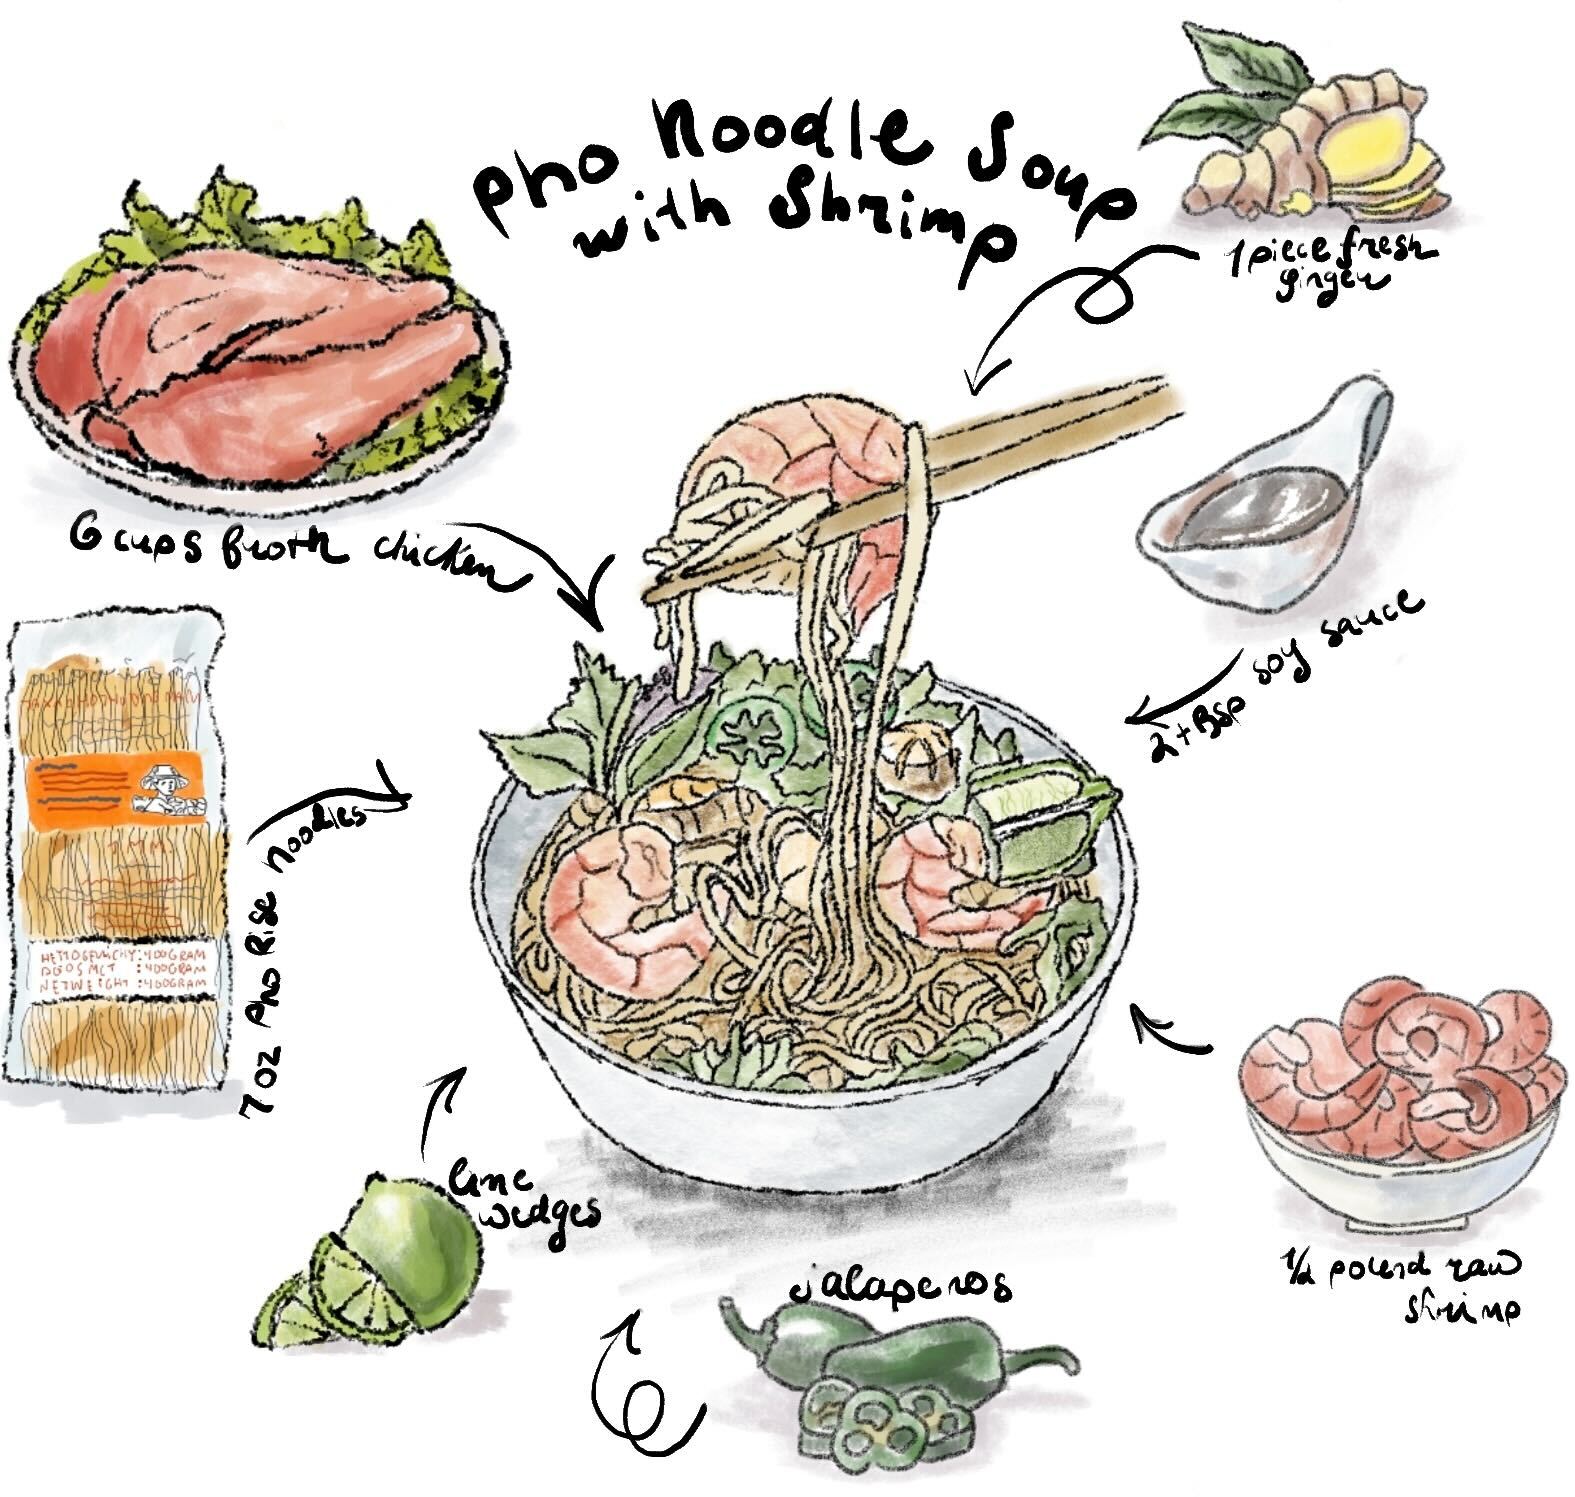 pho Noodle Soup
with Shrimp
1 piece fresh
ginger
6 cups broth chicken
2 tBsp soy sauce
7 oz Pho Rise noodles
1 MM
HETTOGEWICHY:400GRAM
:400GRAM
NETWEIGHT :400GRAM
lime
wedges
jalapenos
1/2 pound raw
shrimp